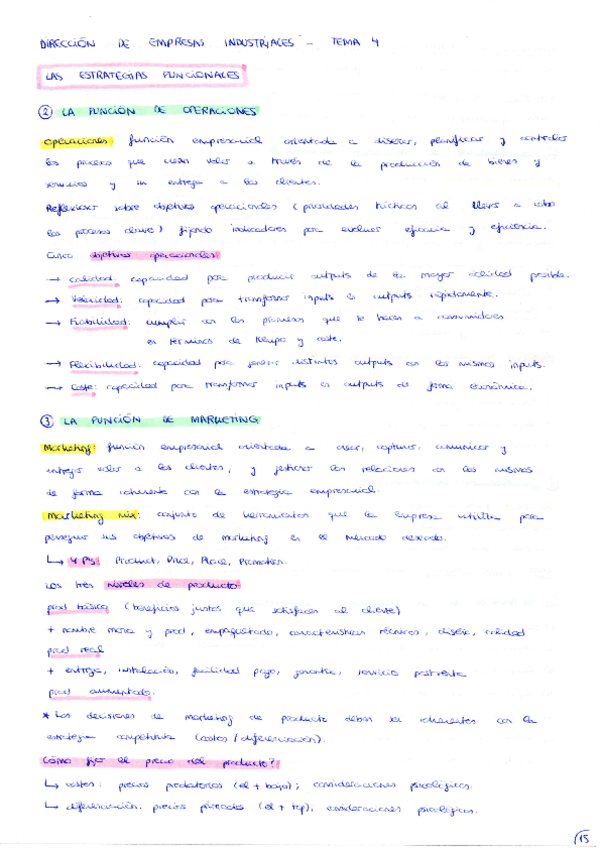 DIRECCIÓN DE EMPRESAS INDUSTRIALES - TEMA 4
LAS ESTRATEGIAS FUNCIONALES
② LA FUNCIÓN DE OPERACIONES
Operaciones: función empresarial orientada a diseñar, planificar y controlar
los procesos que crean valor a través de la producción de bienes y
servicios y su entrega a los clientes.
Reflexionar sobre objetivos operacionales (prioridades al llevar a cabo
los procesos clave) fijando indicadores para evaluar eficacia y eficiencia.
Cinco objetivos operacionales
→ Calidad: capacidad para producir outputs de la mayor calidad posible.
→ Velocidad: capacidad para transformar inputs en outputs rápidamente.
→ Fiabilidad: cumplir con las promesas que se hacen a consumidores
en términos de tiempo y coste.
→ Flexibilidad: capacidad para generar distintos outputs con los mismos inputs.
→ Coste: capacidad para transformar inputs en outputs de forma económica.
③ LA FUNCIÓN DE MARKETING
Marketing: función empresarial orientada a crear, capturar, comunicar y
entregar valor a los clientes, y gestionar las relaciones con los mismos
de forma coherente con la estrategia empresarial.
Marketing mix: conjunto de herramientas que la empresa utiliza para
perseguir sus objetivos de marketing en el mercado deseado.
↳ 4 P's: Product, Price, Place, Promotion.
Los tres niveles de producto:
prod básico (beneficios justos que satisfacen al cliente)
+ nombre marca y prod, empaquetado, características técnicas, diseño, calidad
prod real
+ entrega, instalación, facilidad pago, garantía, servicio postventa
prod aumentado.
* Las decisiones de marketing de producto deben ser coherentes con la
estrategia competitiva (costes / diferenciación).
¿Cómo fijar el precio del producto?
↳ costes: precios predatorios (el + bajo); consideraciones psicológicas.
↳ diferenciación: precios (el + top); consideraciones psicológicas.
15